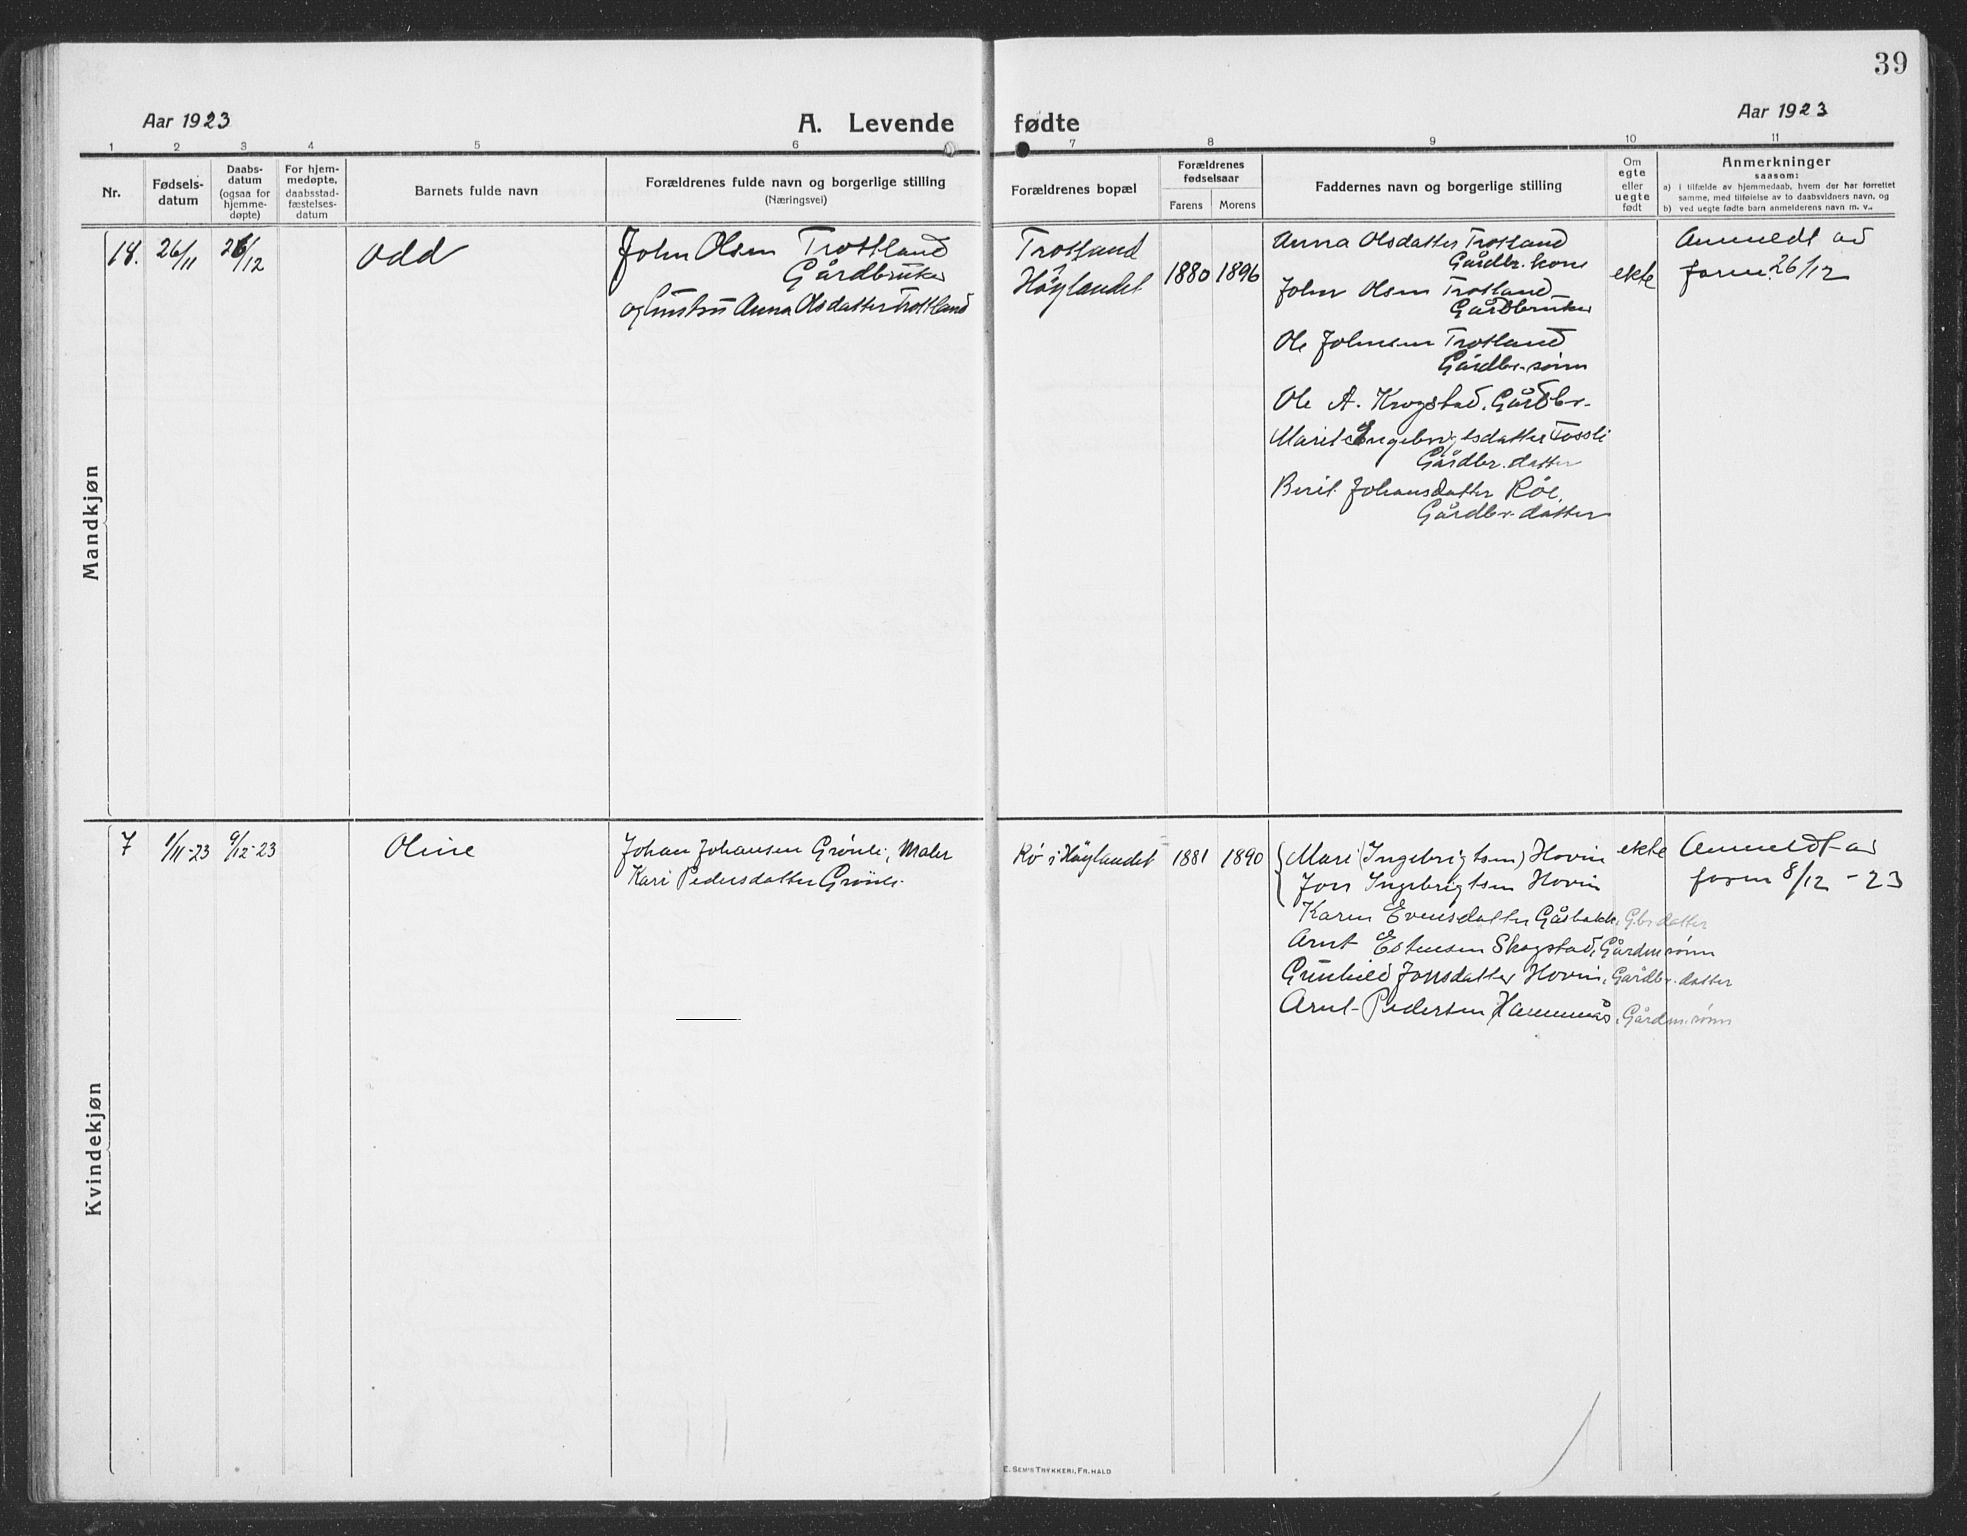 39
Aar 1923
A. Levende fødte
Aar 1923
1 2 3 4 5 6 7 8 9 10 11
Nr.
Fødsels-
datum
Daabs-
datum
(ogsaa for
hjemme-
døpte)
For hjem-
medøpte,
daabsstad-
fæstelses-
datum
Barnets fulde navn
Forældrenes fulde navn og borgerlige stilling
(Næringsvei)
Forældrenes bopæl
Forældrenes
fødselsaar
Farens Morens
Faddernes navn og borgerlige stilling
Om
egte
eller
uegte
født
Anmerkninger
saasom:
a) i tilfælde av hjemmedaab, hvem der har forrettet
samme, med tilføielse av to daabsvidners navn, og
b) ved uegte fødte barn anmelderens navn m. v.
Mandkjøn
18. 26/11 26/12
Odd
John Olsen Trotland
Gårdbruker
og hustru Anna Olsdatter Trotland
Trotland
Høylandet
1880 1896
Anna Olsdatter Trotland
Gårdbr. kone
John Olsen Trotland
Gårdbruker
Ole Johnsen Trotland
Gårdbr. sønn
Ole A. Krogstad, Gårdbr.
Marit Engebrigtsdatter Tossli
Gårdbr. datter
Berit Johansdatter Røe,
Gårdbr. datter
ekte
Anmeldt av
faren 26/12
Kvindekjøn
7 1/11-23 9/12-23
Oline
Johan Johansen Grønli, Maler
Kari Pedersdatter Grønli
Rø i Høylandet
1881 1890
Mari (Ingebrigtsen) Hovin
Jon Ingebrigtsen Hovin
Karen Evensdatter Gåsbakk, Gbr datter
Arnt Estensen Skogstad, Gårdm. sønn
Gunhild Jonsdatter Hovin, Gårdbr. datter
Arnt Pedersen Hammås, Gårdm. sønn
ekte
Anmeldt av
faren 8/12-23
E. SEM'S TRYKKERI, FR.HALD